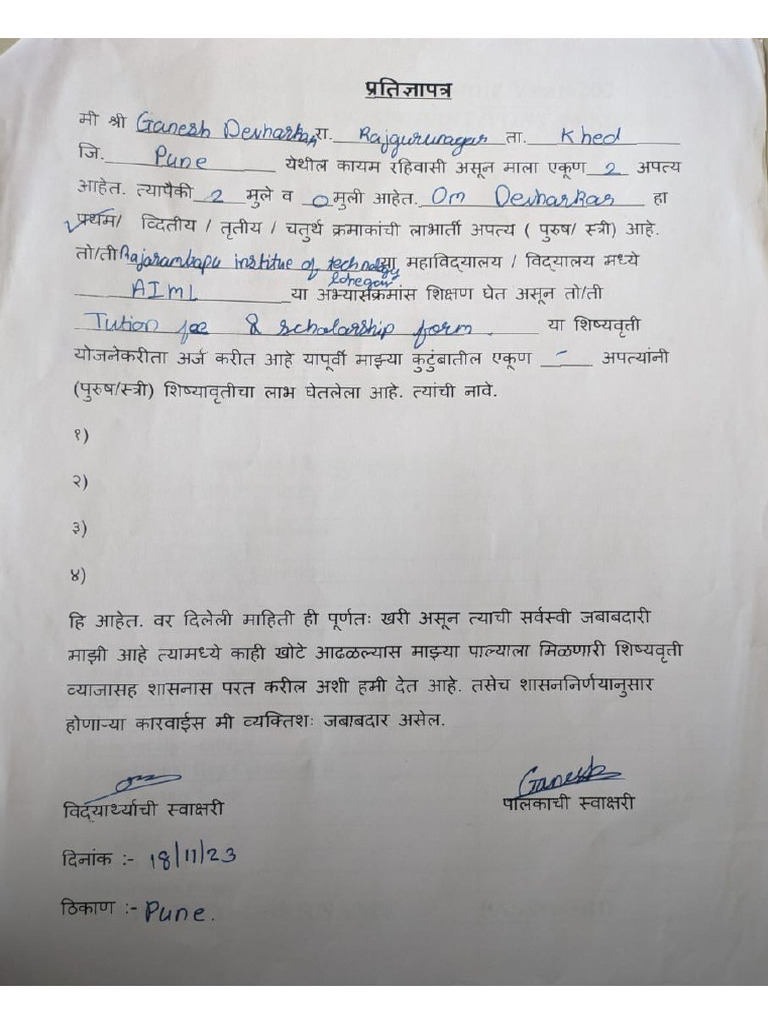 प्रतिज्ञापत्र
मी श्री Ganesh Devharkar रा. Rajgurunagar ता. Khed
जि. Pune येथील कायम रहिवासी असून माला एकूण 2 अपत्य
आहेत. त्यापैकी 2 मुले व 0 मुली आहेत. Om Devharkar हा
प्रथम/ व्दितीय / तृतीय / चतुर्थ क्रमाकांची लाभार्ती अपत्य ( पुरुष/ स्त्री) आहे.
तो/ती Rajarambapu institue of technology lohegaon या महाविद्यालय / विद्यालय मध्ये
AIML या अभ्यासक्रमांस शिक्षण घेत असून तो/ती
Tution fee & scholarship form. या शिष्यवृत्ती
योजनेकरीता अर्ज करीत आहे यापूर्वी माझ्या कुटुंबातील एकूण - अपत्यांनी
(पुरुष/स्त्री) शिष्यावृतीचा लाभ घेतलेला आहे. त्यांची नावे.
१)
२)
३)
४)
हि आहेत. वर दिलेली माहिती ही पूर्णतः खरी असून त्याची सर्वस्वी जबाबदारी
माझी आहे त्यामध्ये काही खोटे आढळल्यास माझ्या पाल्याला मिळणारी शिष्यवृत्ती
व्याजासह शासनास परत करील अशी हमी देत आहे. तसेच शासननिर्णयानुसार
होणाऱ्या कारवाईस मी व्यक्तिशः जबाबदार असेल.
Ganesh
विद्यार्थ्याची स्वाक्षरी पालकाची स्वाक्षरी
दिनांक :- 18/11/23
ठिकाण :- Pune.